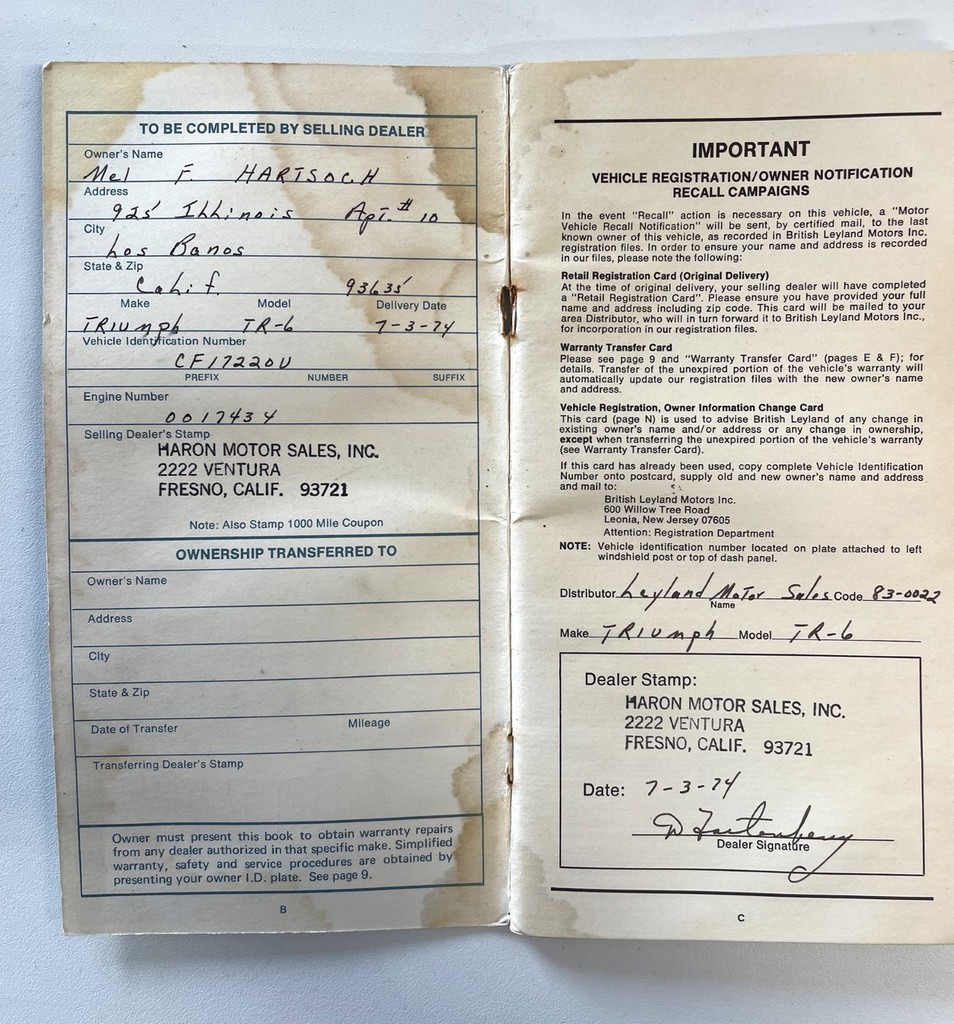 TO BE COMPLETED BY SELLING DEALER
Owner's Name
Mel F. HARTSOCH
Address
925 Illinois Apt. # 10
City
Los Banos
State & Zip
Calif. 93635
Make Model Delivery Date
TRIUMPH TR-6 7-3-74
Vehicle Identification Number
CF17220U
PREFIX NUMBER SUFFIX
Engine Number
0017434
Selling Dealer's Stamp
HARON MOTOR SALES, INC.
2222 VENTURA
FRESNO, CALIF. 93721
Note: Also Stamp 1000 Mile Coupon
OWNERSHIP TRANSFERRED TO
Owner's Name
Address
City
State & Zip
Date of Transfer Mileage
Transferring Dealer's Stamp
Owner must present this book to obtain warranty repairs
from any dealer authorized in that specific make. Simplified
warranty, safety and service procedures are obtained by
presenting your owner I.D. plate. See page 9.
B
IMPORTANT
VEHICLE REGISTRATION/OWNER NOTIFICATION
RECALL CAMPAIGNS
In the event "Recall" action is necessary on this vehicle, a "Motor
Vehicle Recall Notification" will be sent, by certified mail, to the last
known owner of this vehicle, as recorded in British Leyland Motors Inc.
registration files. In order to ensure your name and address is recorded
in our files, please note the following:
Retail Registration Card (Original Delivery)
At the time of original delivery, your selling dealer will have completed
a "Retail Registration Card". Please ensure you have provided your full
name and address including zip code. This card will be mailed to your
area Distributor, who will in turn forward it to British Leyland Motors Inc.,
for incorporation in our registration files.
Warranty Transfer Card
Please see page 9 and "Warranty Transfer Card" (pages E & F); for
details. Transfer of the unexpired portion of the vehicle's warranty will
automatically update our registration files with the new owner's name
and address.
Vehicle Registration, Owner Information Change Card
This card (page N) is used to advise British Leyland of any change in
existing owner's name and/or address or any change in ownership,
except when transferring the unexpired portion of the vehicle's warranty
(see Warranty Transfer Card).
If this card has already been used, copy complete Vehicle Identification
Number onto postcard, supply old and new owner's name and address
and mail to:
British Leyland Motors Inc.
600 Willow Tree Road
Leonia, New Jersey 07605
Attention: Registration Department
NOTE: Vehicle identification number located on plate attached to left
windshield post or top of dash panel.
Distributor Leyland Motor Sales Code 83-0022
Name
Make TRIUMPH Model TR-6
Dealer Stamp:
HARON MOTOR SALES, INC.
2222 VENTURA
FRESNO, CALIF. 93721
Date: 7-3-74
Dealer Signature
C